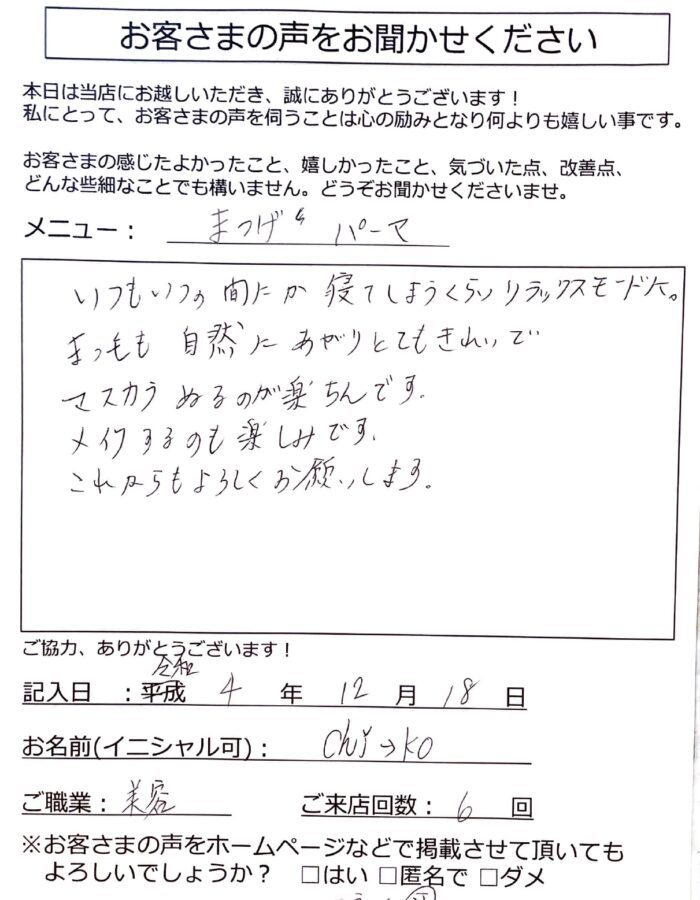 お客さまの声をお聞かせください
本日は当店にお越しいただき、誠にありがとうございます！
私にとって、お客さまの声を伺うことは心の励みとなり何よりも嬉しい事です。
お客さまの感じたよかったこと、嬉しかったこと、気づいた点、改善点、
どんな些細なことでも構いません。どうぞお聞かせくださいませ。
メニュー： まつげ パーマ
いつもいつの間にか 寝てしまうくらいリラックスモードに。
まつ毛も 自然に あがりとてもきれいで
マスカラ ぬるのが楽ちんです。
メイクするのも楽しみです。
これからもよろしくお願いします。
ご協力、ありがとうございます！
令和
記入日 ：平成 4 年 12 月 18 日
お名前(イニシャル可)： chi→ko
ご職業： 美容 ご来店回数： 6 回
※お客さまの声をホームページなどで掲載させて頂いても
よろしいでしょうか？ □はい □匿名で □ダメ